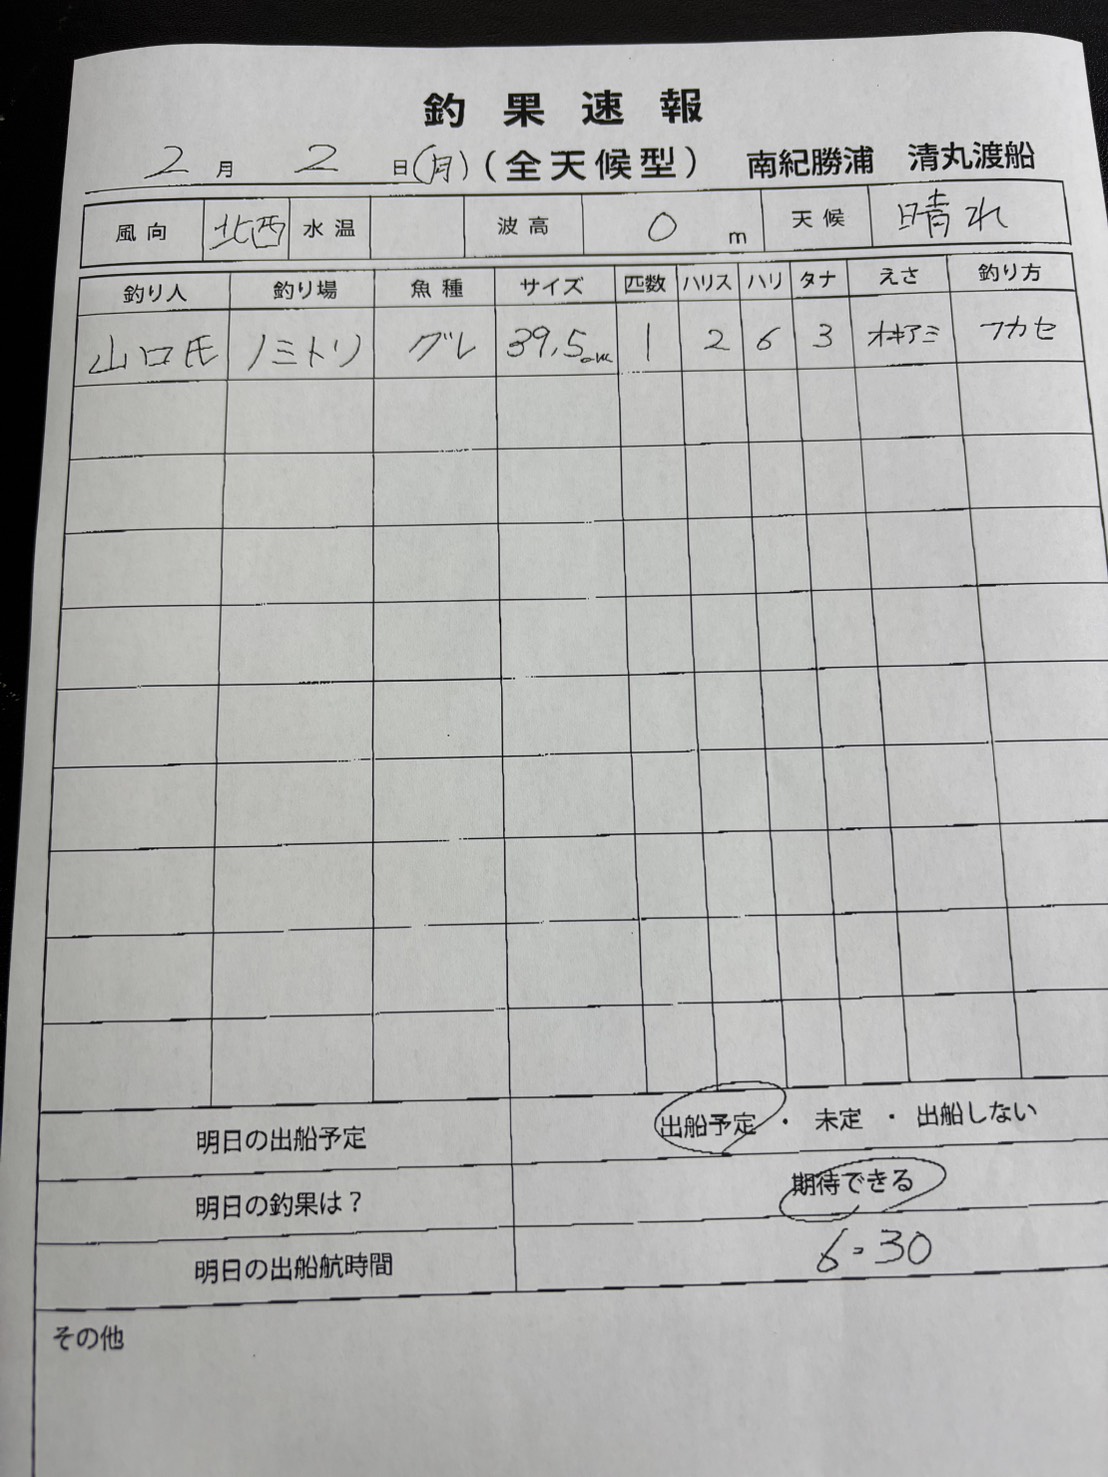 釣果速報
2月2日(月)(全天候型) 南紀勝浦 清丸渡船
風向 北西 水温 波高 0 m 天候 晴れ
釣り人 釣り場 魚種 サイズ 匹数 ハリス ハリ タナ えさ 釣り方
山口氏 ノミトリ グレ 39.5cm 1 2 6 3 オキアミ フカセ
明日の出船予定 出船予定・未定・出船しない
明日の釣果は? 期待できる
明日の出船航時間 6:30
その他